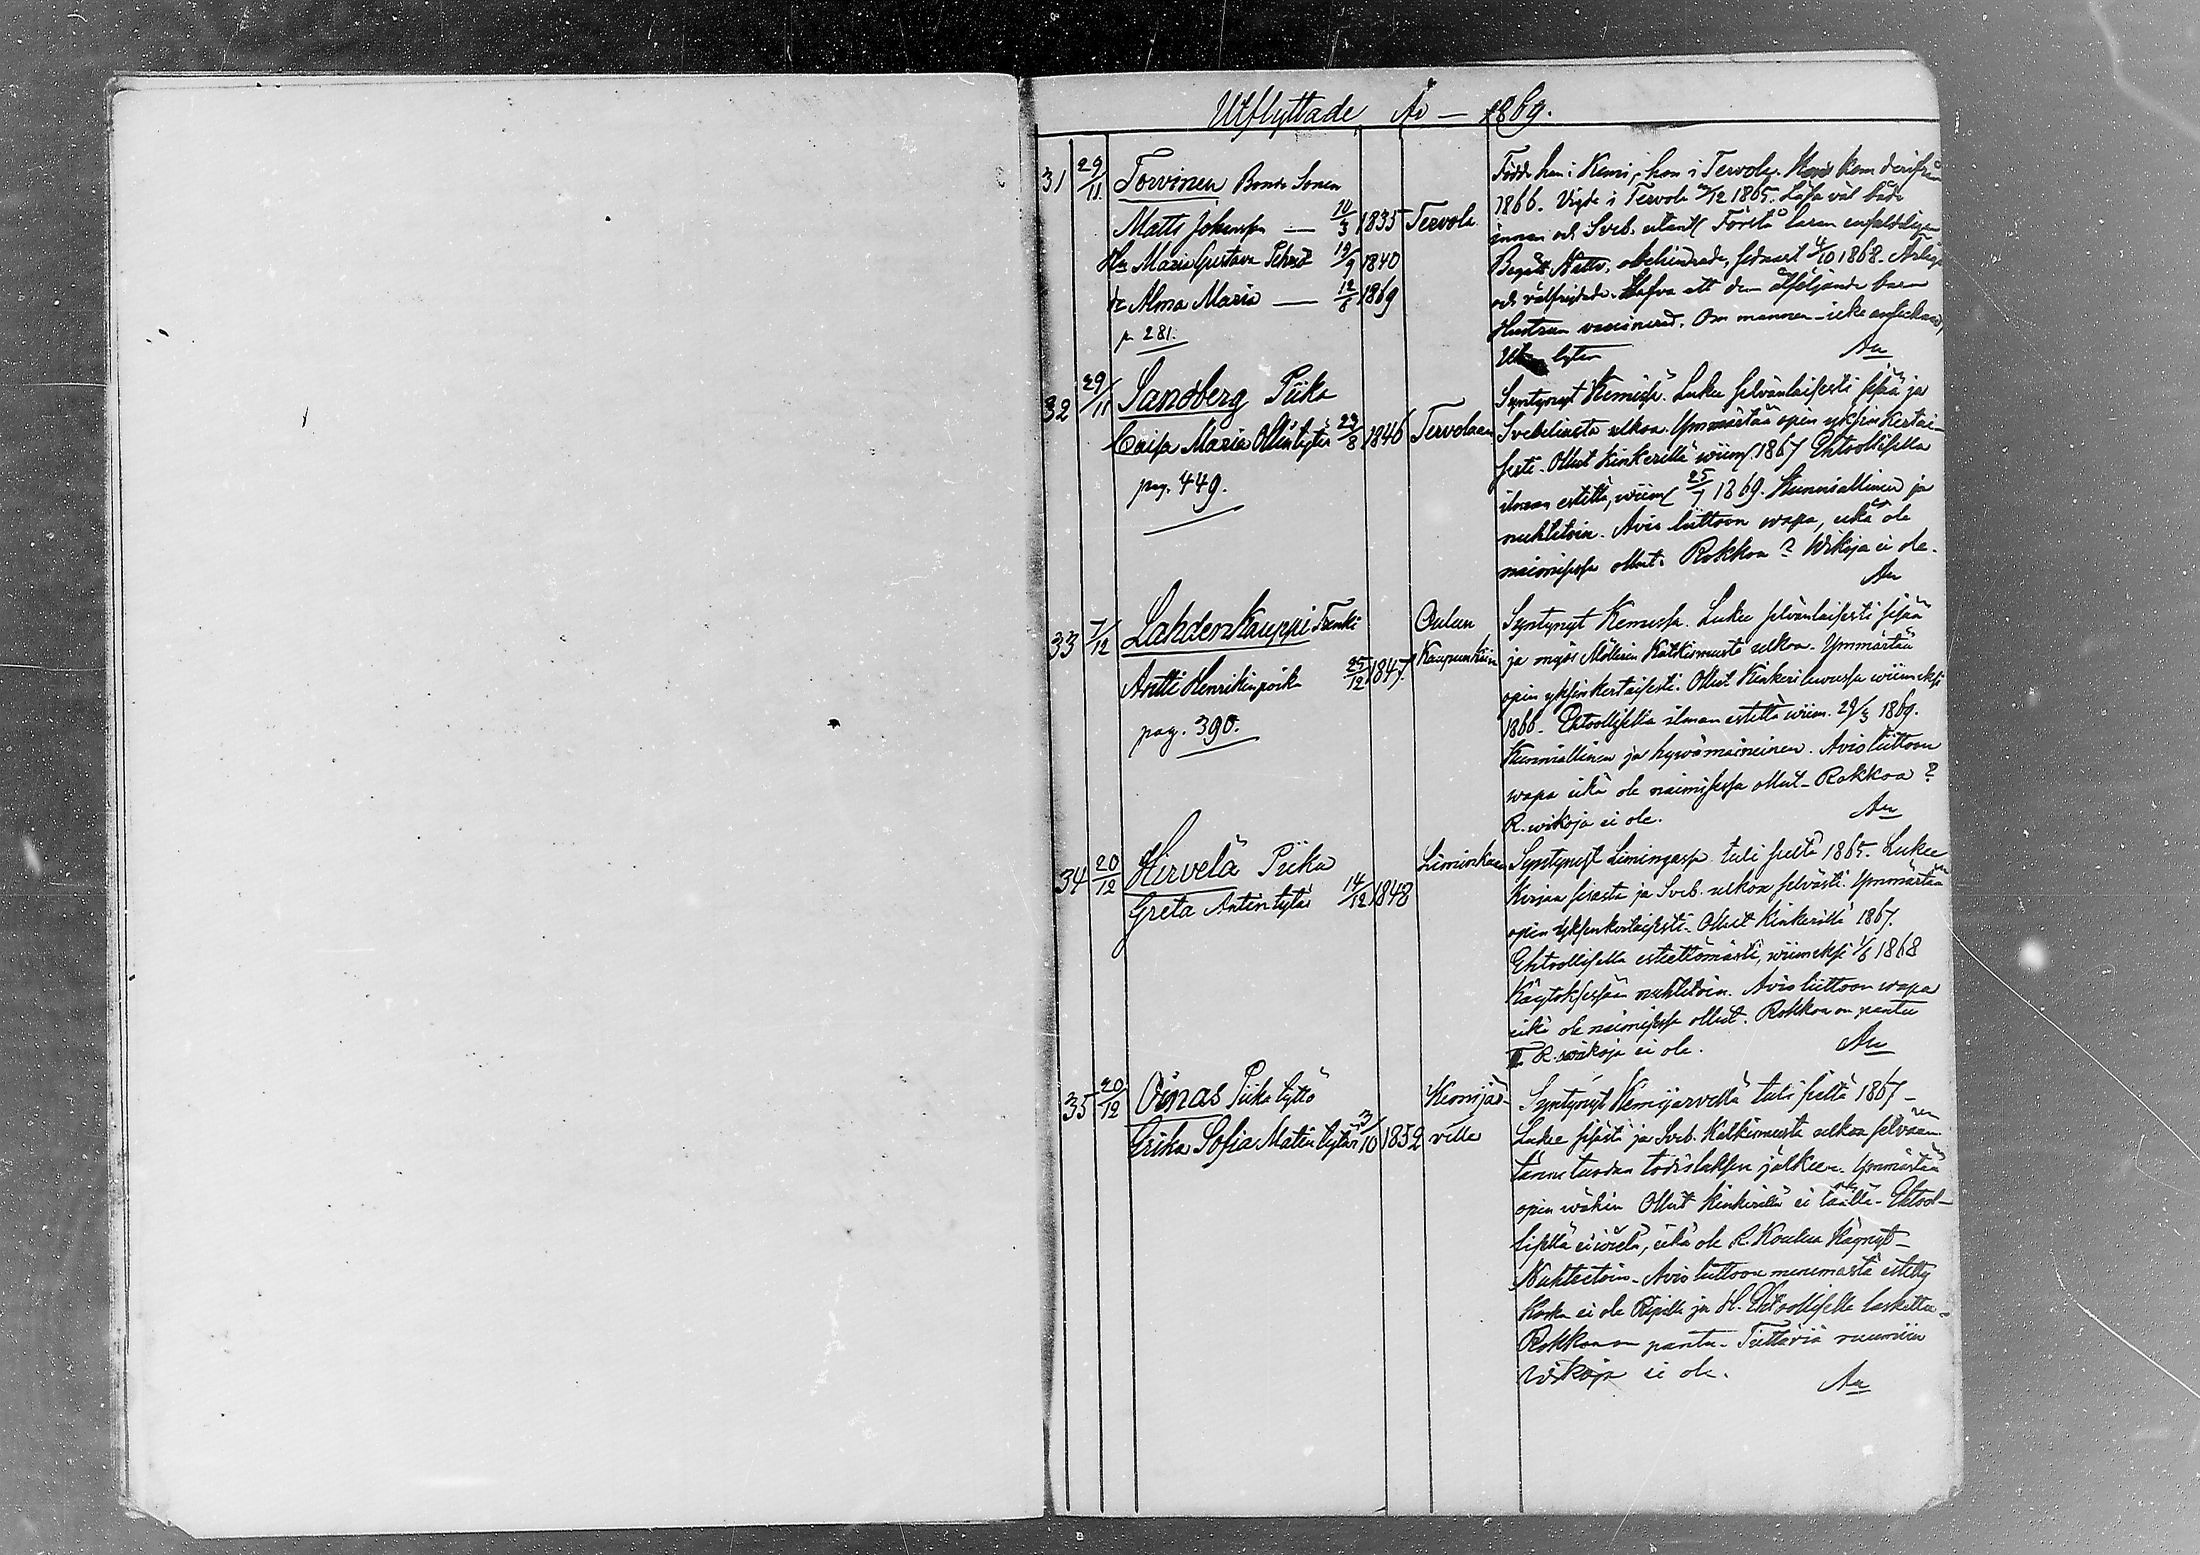 Utflyttade År — 1869.
31 29/11 Torvinen Bonde Sonen
Matts Johansson — 10/3 1835 Tervola
Hu Maria Gustava 19/9 1840
dr Alma Maria — 12/8 1869
p 281.
Född han i Kemi, hon i Tervola. Hon kom därifrån
1866. Vigde i Tervola /12 1865. Läsa väl både
innan och Sveb. utant. Förstå läran enfaldeligen
Begått Nattv. obehindrade, sednast 4/10 1868. Ärlige
och välfrejdade. Hafva ett dem åtföljande barn
Hustrun vaccinerad. Om mannen icke antecknad,
Utan lyten
An
32 29/11 Sandberg Piika
Caisa Maria Ollintytär 23/8 1846 Tervolaan
pag. 449.
Syntynyt Kemissä. Lukee selvänlaisesti sisää ja
Svebeliusta ulkoa. Ymmärtää opin yksinkertai-
sesti. Ollut kinkerillä wiim. 1867 Ehtoollisella
ilman estettä, wiim. 25/7 1869. Kunniallinen ja
nuhtetoin. Avio liittoon wapa, eikä ole
naimisissa ollut. Rokkoa? Wikoja ei ole.
An
33 7/12 Lahdenkauppi Trenki
Antti Henrikinpoika 25/12 1847 Oulun
Kaupunkiin
pag. 390.
Syntynyt Kemissä. Lukee selvänlaisesti sisää
ja myös Möllerin Katkismusta ulkoa. Ymmärtää
opin yksinkertaisesti. Ollut Kinkeri luvussa wiimeksi
1866. Ehtoollisella ilman estettä wiim. 29/3 1869.
Kunniallinen ja hywämaineinen. Avio liittoon
wapa eikä ole naimisissa ollut – Rokkoa?
R. wikoja ei ole.
An
34 20/12 Hirvelä Piika
Greta Antintytär 14/12 1848 Liminkaan
Syntynyt Limingassa tuli sieltä 1865. Lukee
Kirjaa sisästä ja Sveb. ulkoa selvästi. Ymmärtää
opin yksinkertaisesti. Ollut Kinkerillä 1867.
Ehtoollisella esteettömästi, wiimeksi 1868
Käytöksessään nuhtetoin. Avio liittoon wapa
eikä ole naimisissa ollut. Rokkoa on pantu
R. wikoja ei ole.
An
35 20/12 Oinas Piika tyttö
Erika Sofia Matin tytär 3/10 1852 Kemijär-
ville
Syntynyt Kemijärvellä tuli sieltä 1867 –
Lukee sisästä ja Sveb. Katkismusta ulkoa selvään
tänne tuodun todistuksen jälkeen. Ymmärtää
opin wähin Ollut kinkerillä ei täällä – Ehtool-
lisella ei wielä, eikä ole R. Koulua Käynyt –
Nuhteetoin – Avio liittoon menemästä estetty
koska ei ole Ripille ja H. Ehtoolliselle laskettu –
Rokkoa on pantu – Tiettäviä ruumiin
wikoja ei ole.
An